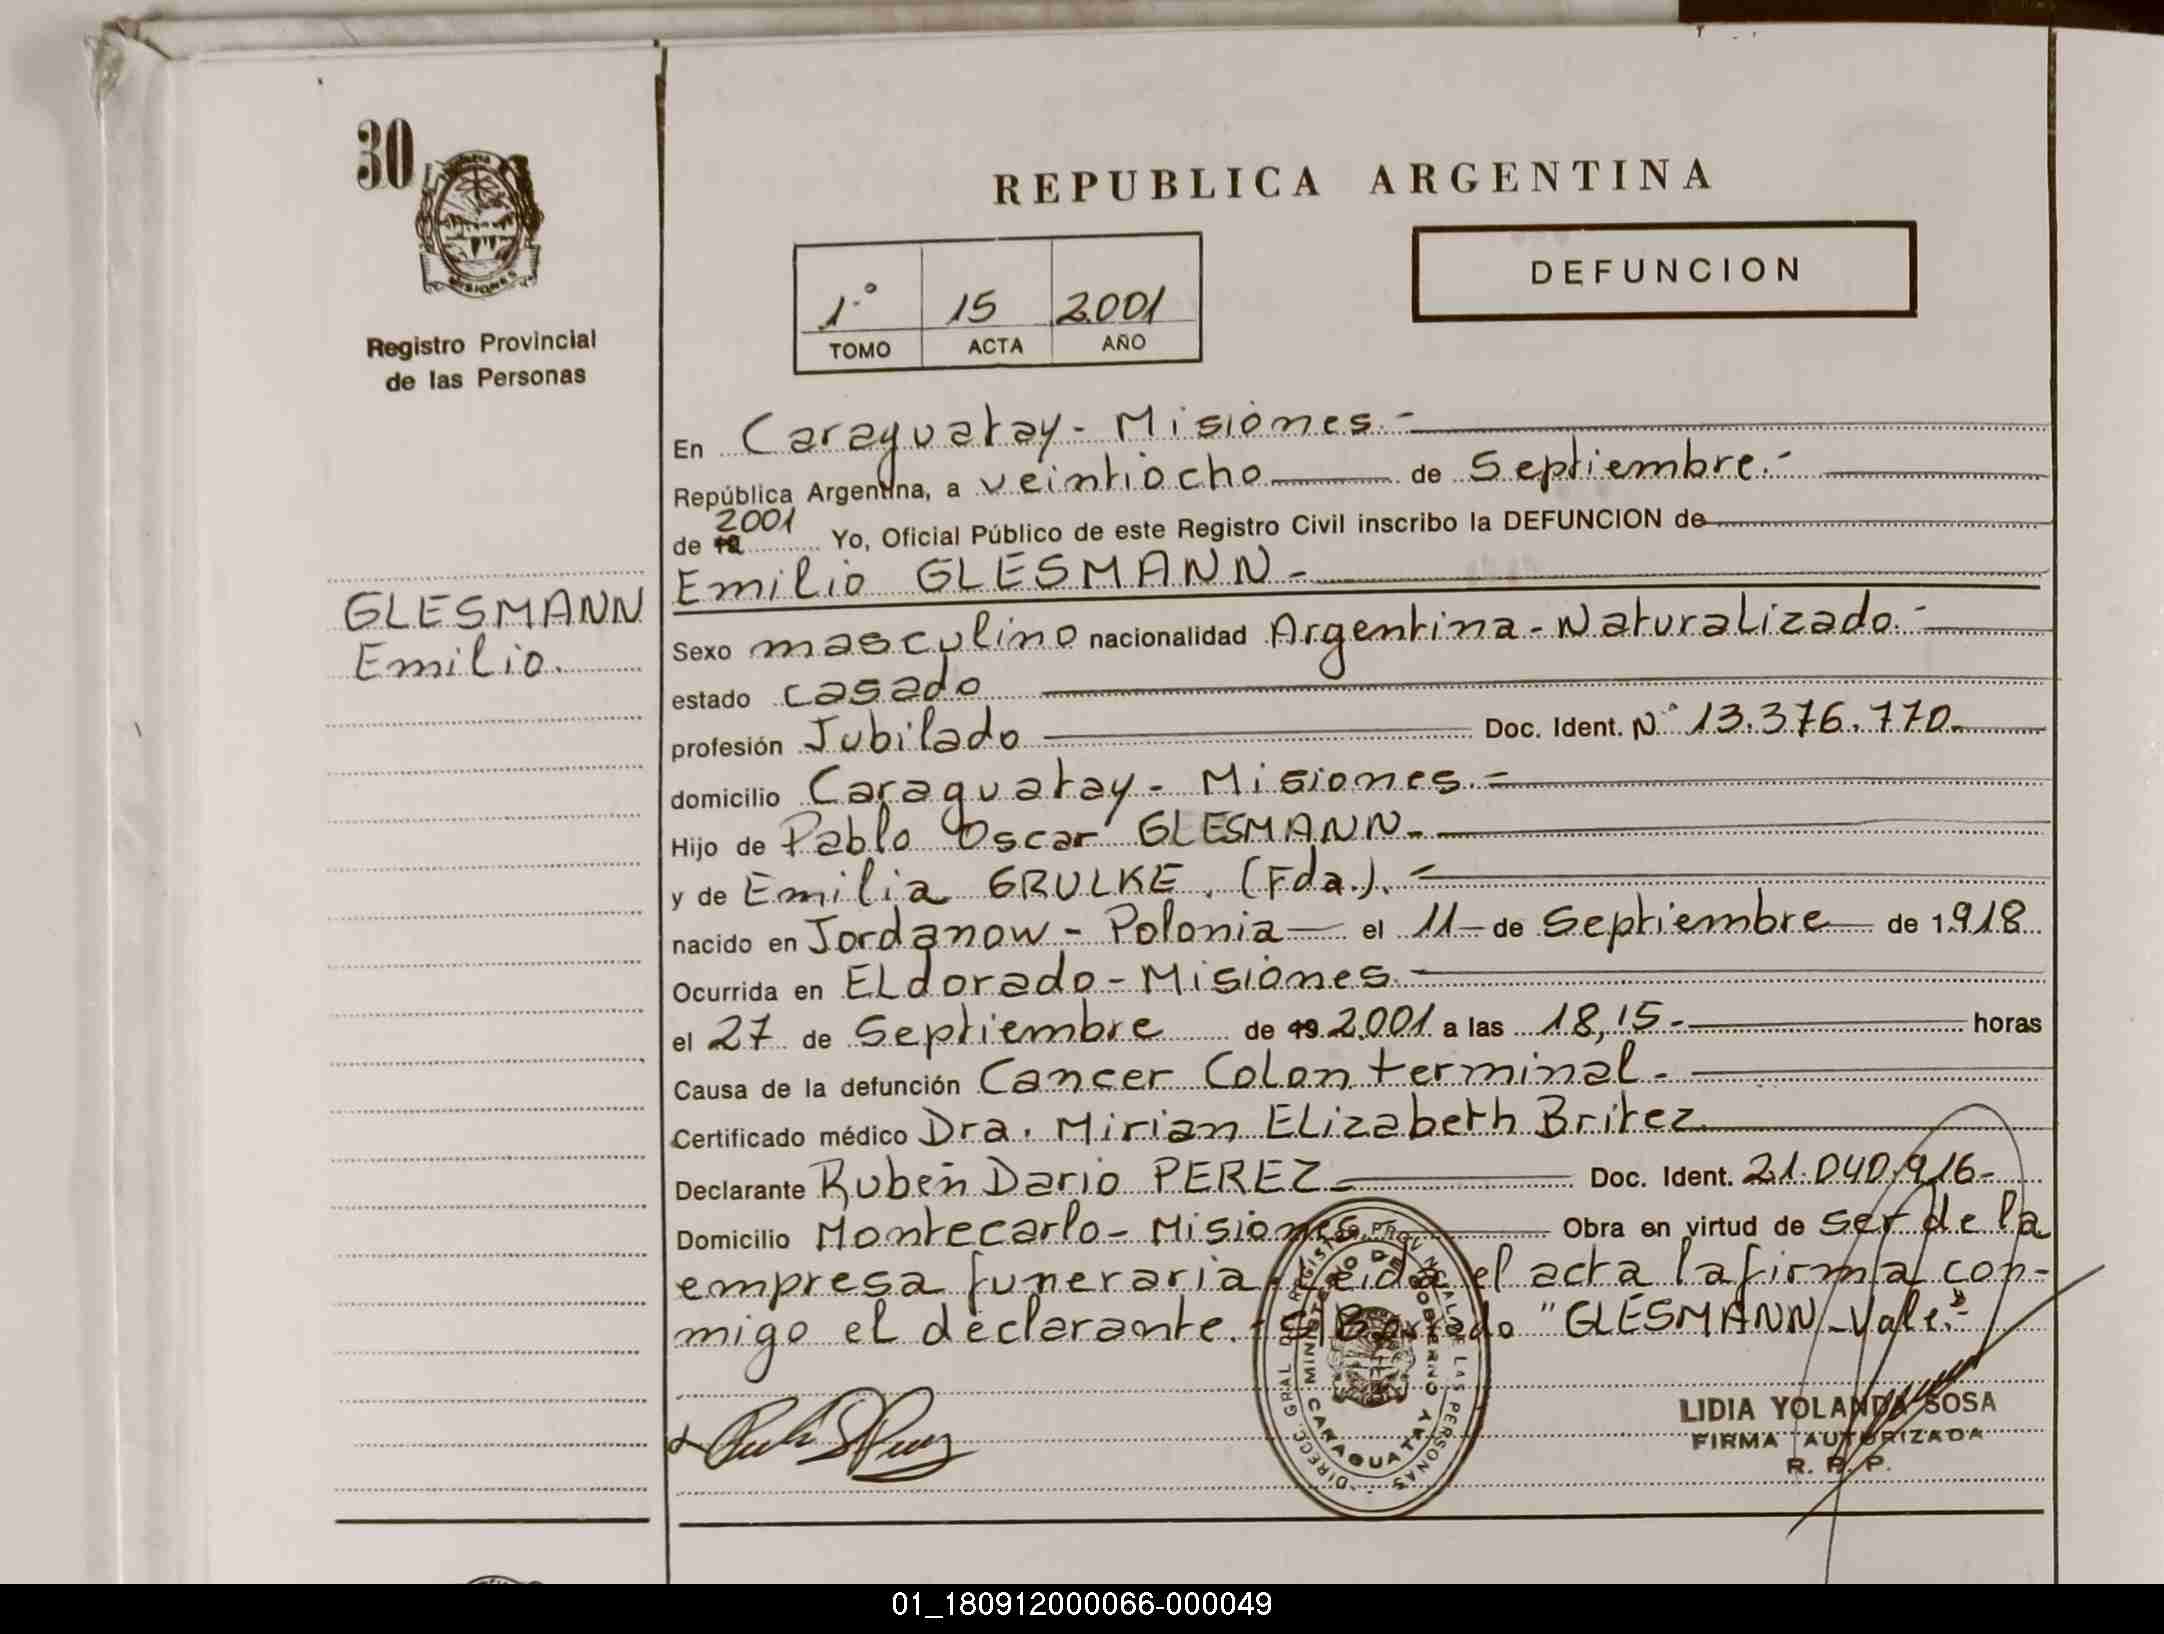 30
MISIONES
Registro Provincial
de las Personas
GLESMANN
Emilio.
REPUBLICA ARGENTINA
1.° 15 2001
TOMO ACTA AÑO
DEFUNCION
En Caraguatay - Misiones.-
República Argentina, a veintiocho de Septiembre.-
de 19 2001 Yo, Oficial Público de este Registro Civil inscribo la DEFUNCION de
Emilio GLESMANN -
Sexo masculino nacionalidad Argentina - Naturalizado.-
estado casado
profesión Jubilado Doc. Ident. N° 13.376.770.-
domicilio Caraguatay - Misiones.-
Hijo de Pablo Oscar GLESMANN -
y de Emilia GRULKE. (Fda.).-
nacido en Jordanow - Polonia el 11 de Septiembre de 1.918
Ocurrida en ELdorado - Misiones.
el 27 de Septiembre de 19 2.001 a las 18,15.- horas
Causa de la defunción Cancer Colon terminal.-
Certificado médico Dra. Mirian ELizabeth Britez.
Declarante Rubén Dario PEREZ Doc. Ident. 21.040.916-
Domicilio Montecarlo - Misiones Obra en virtud de ser de la
empresa funeraria. Leida el acta la firma con-
migo el declarante.- S/Borrado "GLESMANN - Vale".-
DIRECC. GRAL. DEL REGISTRO PROVINCIAL DE LAS PERSONAS
MINISTERIO DE GOBIERNO
CARAGUATAY
LIDIA YOLANDA SOSA
FIRMA AUTORIZADA
R. P. P.
01_180912000066-000049